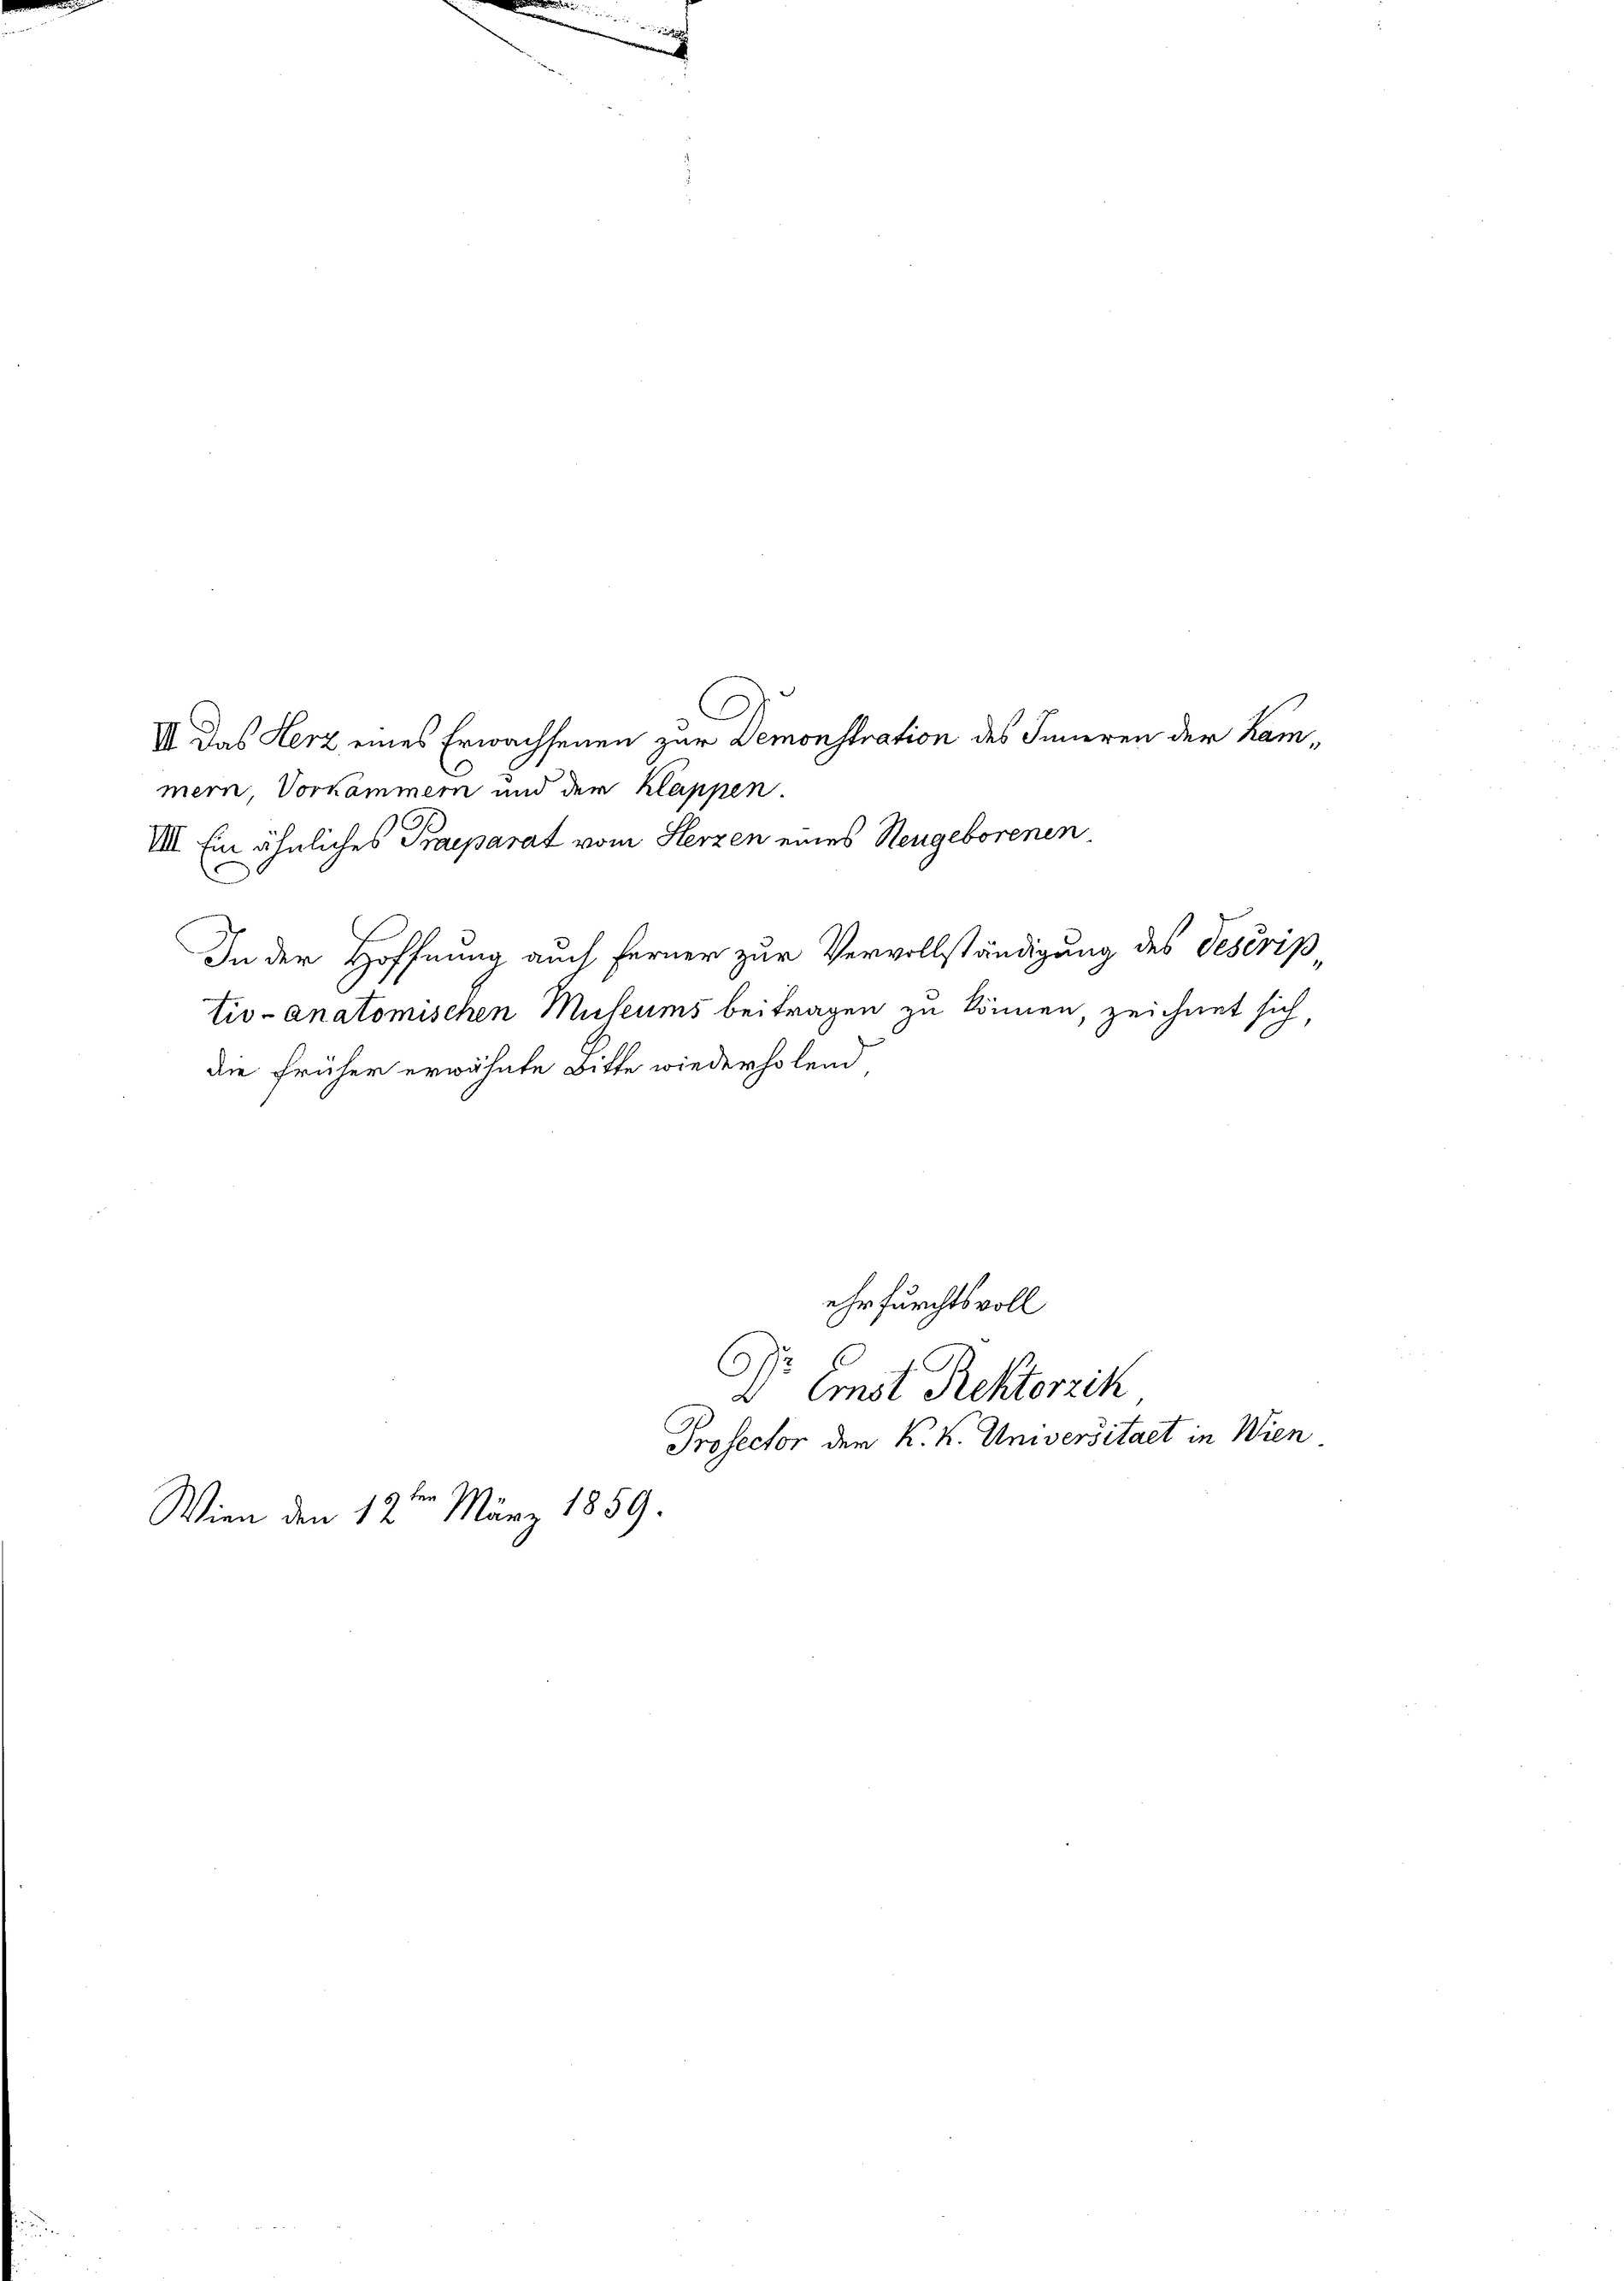 VII Das Herz eines Erwachsenen zur Demonstration des Inneren der Kam„
mern, Vorkammern und der Klappen.
VIII Ein ähnliches Praeparat vom Herzen eines Neugeborenen.
In der Hoffnung auch ferner zur Vervollständigung des descrip„
tiv-anatomischen Museums beitragen zu können, zeichnet sich,
die früher erwähnte Bitte wiederholend,
ehrfurchtsvoll
Dr Ernst Rektorzik,
Prosector der K. K. Universitaet in Wien.
Wien den 12ten März 1859.